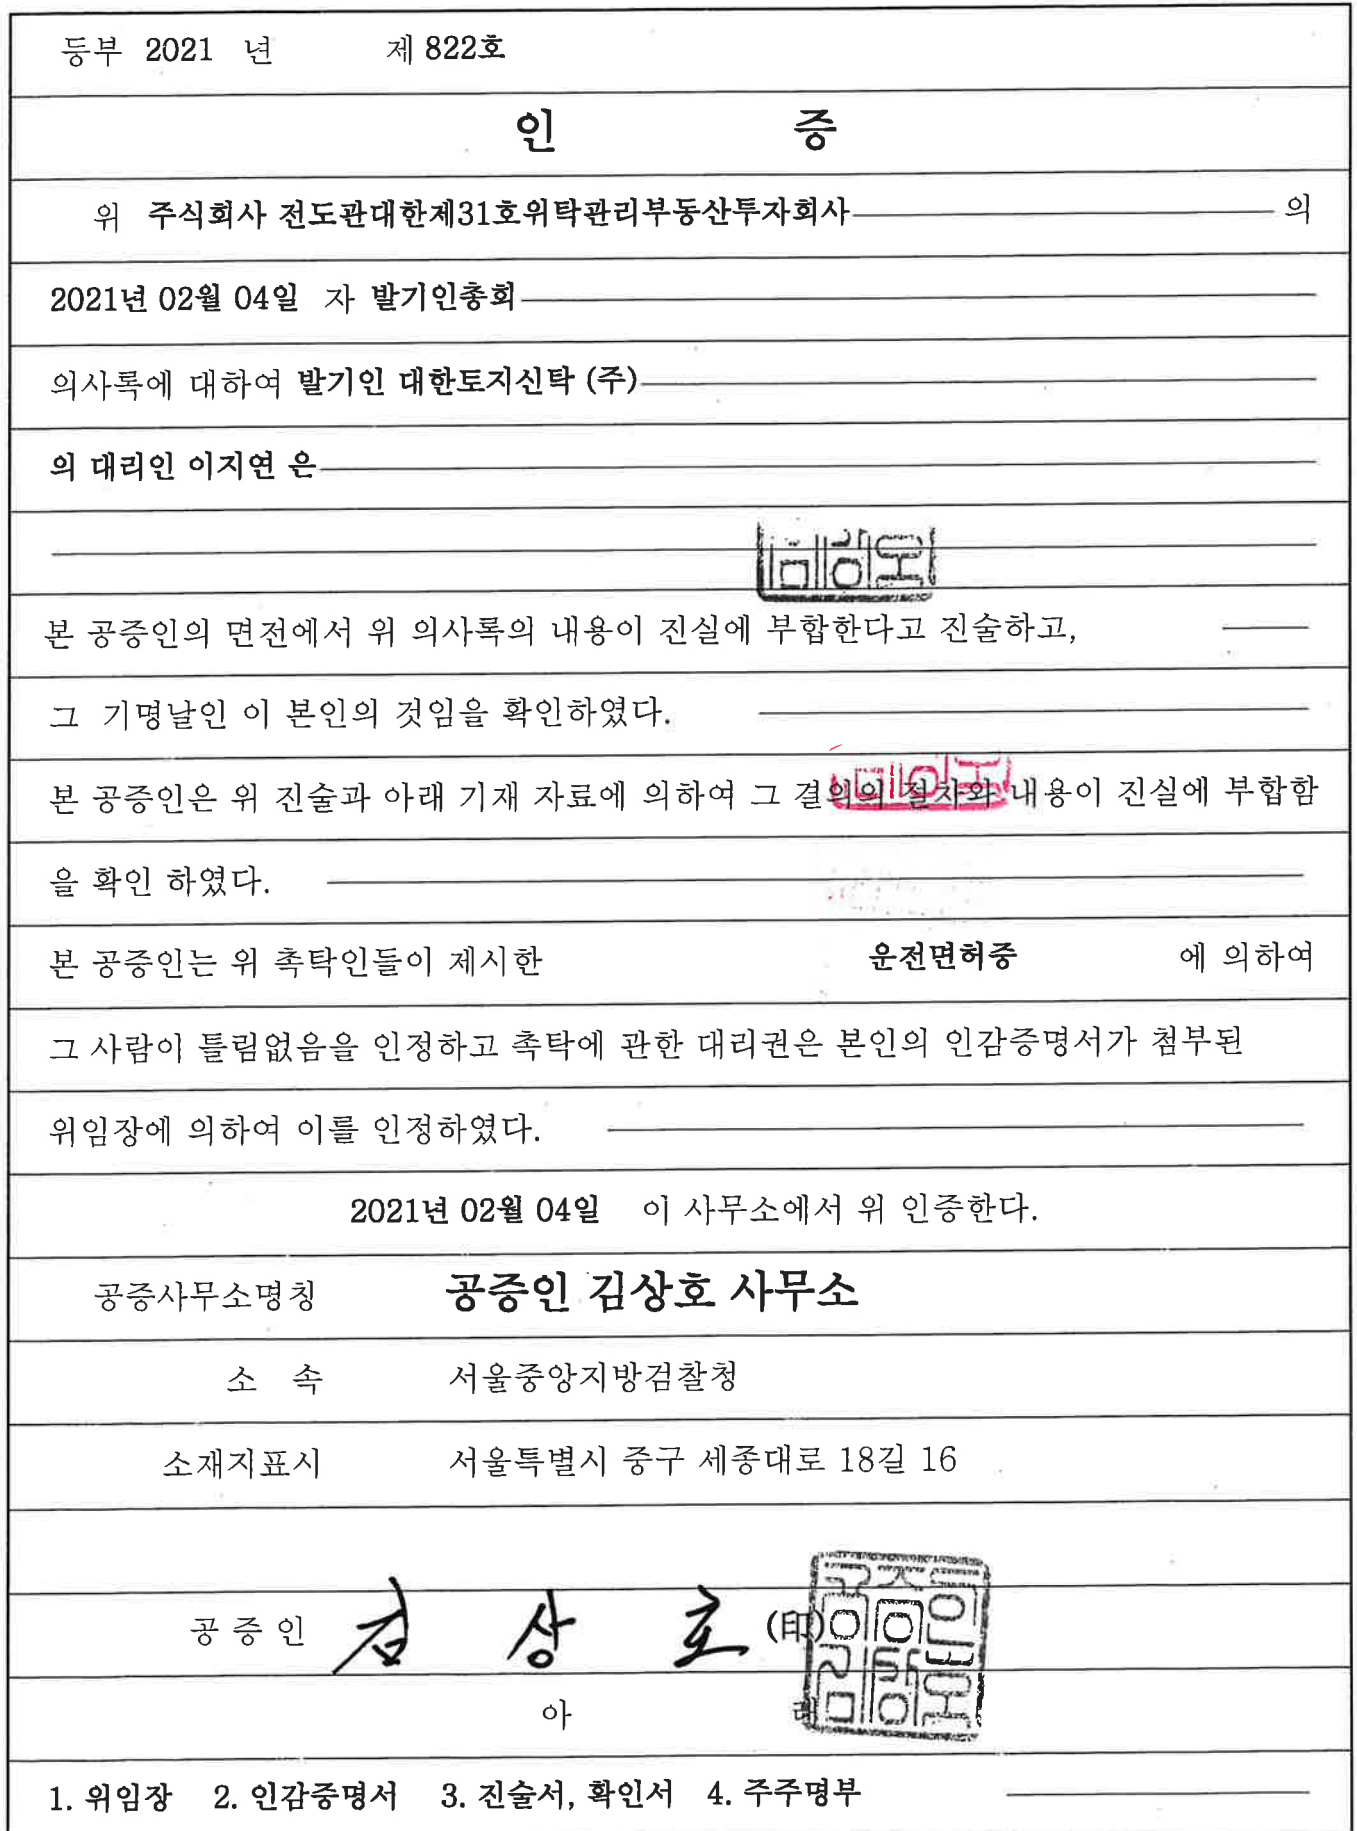 등부 2021 년 제 822호
인 증
위 주식회사 전도관대한제31호위탁관리부동산투자회사 의
2021년 02월 04일 자 발기인총회
의사록에 대하여 발기인 대한토지신탁 (주)
의 대리인 이지연 은
본 공증인의 면전에서 위 의사록의 내용이 진실에 부합한다고 진술하고,
그 기명날인 이 본인의 것임을 확인하였다.
본 공증인은 위 진술과 아래 기재 자료에 의하여 그 결의의 절차와 내용이 진실에 부합함
을 확인 하였다.
본 공증인는 위 촉탁인들이 제시한 운전면허증 에 의하여
그 사람이 틀림없음을 인정하고 촉탁에 관한 대리권은 본인의 인감증명서가 첨부된
위임장에 의하여 이를 인정하였다.
2021년 02월 04일 이 사무소에서 위 인증한다.
공증사무소명칭 공증인 김상호 사무소
소 속 서울중앙지방검찰청
소재지표시 서울특별시 중구 세종대로 18길 16
공 증 인 김 상 호 (印)
아 래
1. 위임장 2. 인감증명서 3. 진술서, 확인서 4. 주주명부